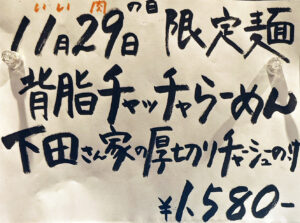 いい肉の日
11月29日 限定麺
背脂チャッチャらーめん
下田さん家の厚切りチャーシューのせ
¥1,580-